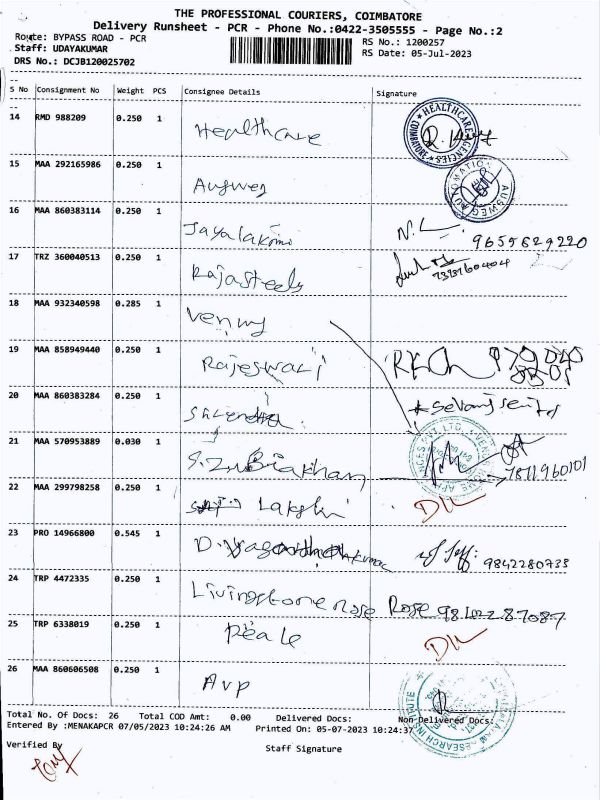 THE PROFESSIONAL COURIERS, COIMBATORE
Delivery Runsheet - PCR - Phone No.:0422-3505555 - Page No.:2
Route: BYPASS ROAD - PCR RS No.: 1200257
Staff: UDAYAKUMAR RS Date: 05-Jul-2023
DRS No.: DCJB120025702
S No Consignment No Weight PCS Consignee Details Signature
14 RMD 988209 0.250 1 Healthcare
HEALTHCARE AGENCIES COIMBATORE
15 MAA 292165986 0.250 1 Ausweg
AUSWEG AUTOMATION
16 MAA 860383114 0.250 1 Jayalakmi 9655629220
17 TRZ 360040513 0.250 1 Rajasteels
18 MAA 932340598 0.285 1 Venny
19 MAA 858949440 0.250 1 Rajeswari
20 MAA 860383284 0.250 1
21 MAA 570953889 0.030 1 7811960101
22 MAA 299798258 0.250 1
23 PRO 14966800 0.545 1 9842280733
24 TRP 4472335 0.250 1 Livingstone rose Rose
25 TRP 6338019 0.250 1
26 MAA 860606508 0.250 1 Avp
RESEARCH INSTITUTE
Total No. Of Docs: 26 Total COD Amt: 0.00 Delivered Docs: Non-Delivered Docs:
Entered By :MENAKAPCR 07/05/2023 10:24:26 AM Printed On: 05-07-2023 10:24:37
Verified By Staff Signature